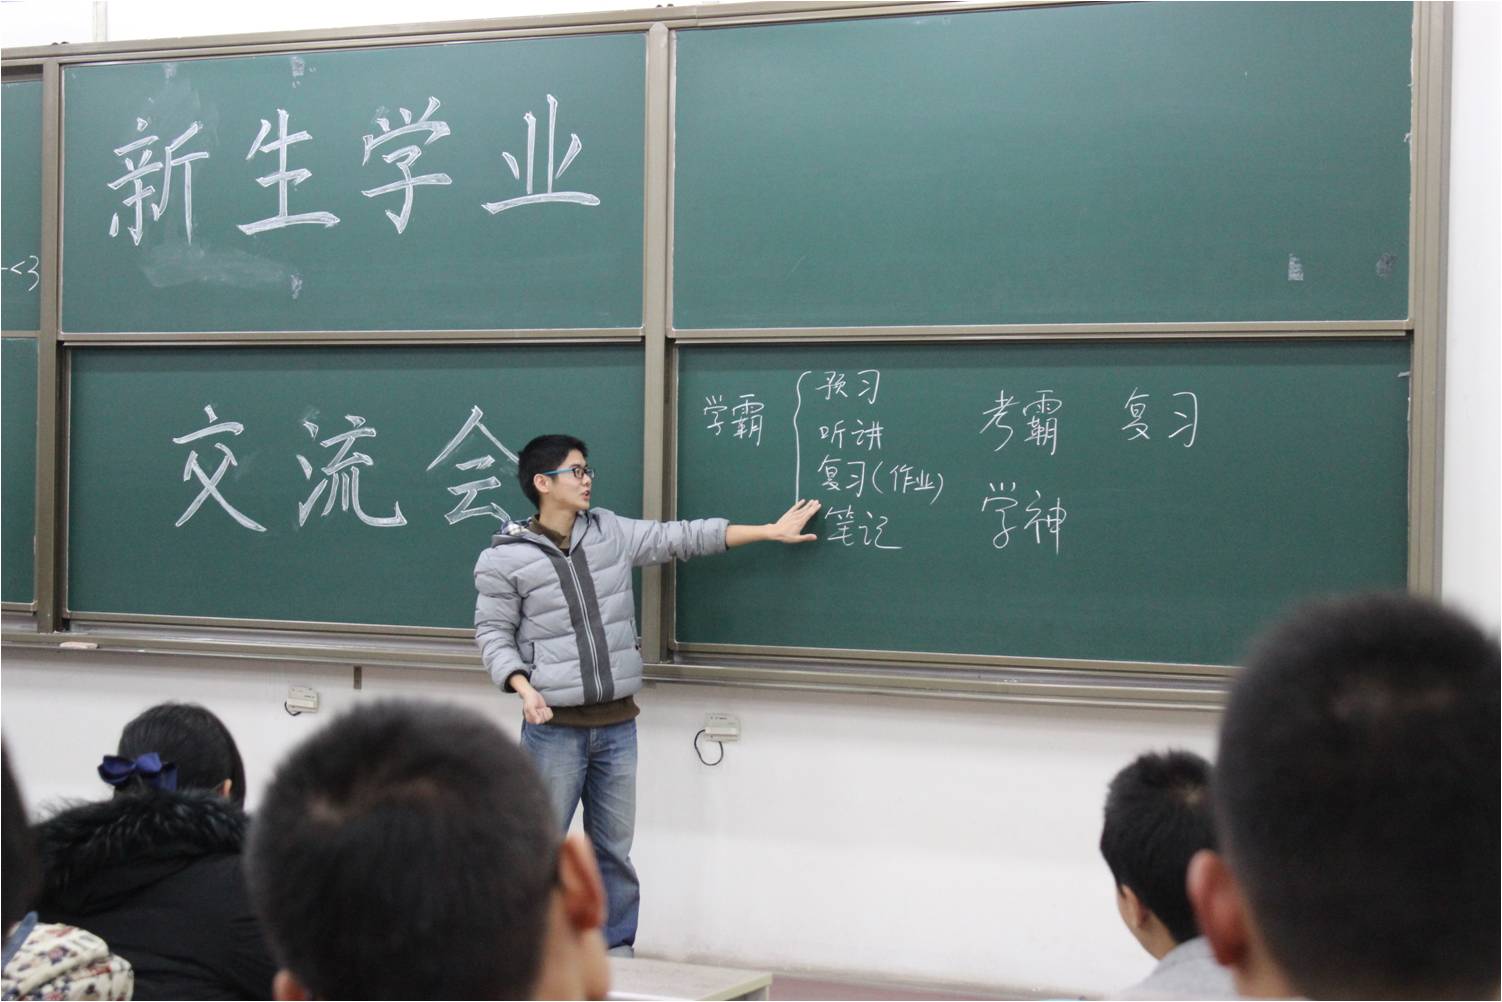 新生学业
交流会
<3
学霸
预习
听讲
复习(作业)
笔记
考霸 复习
学神